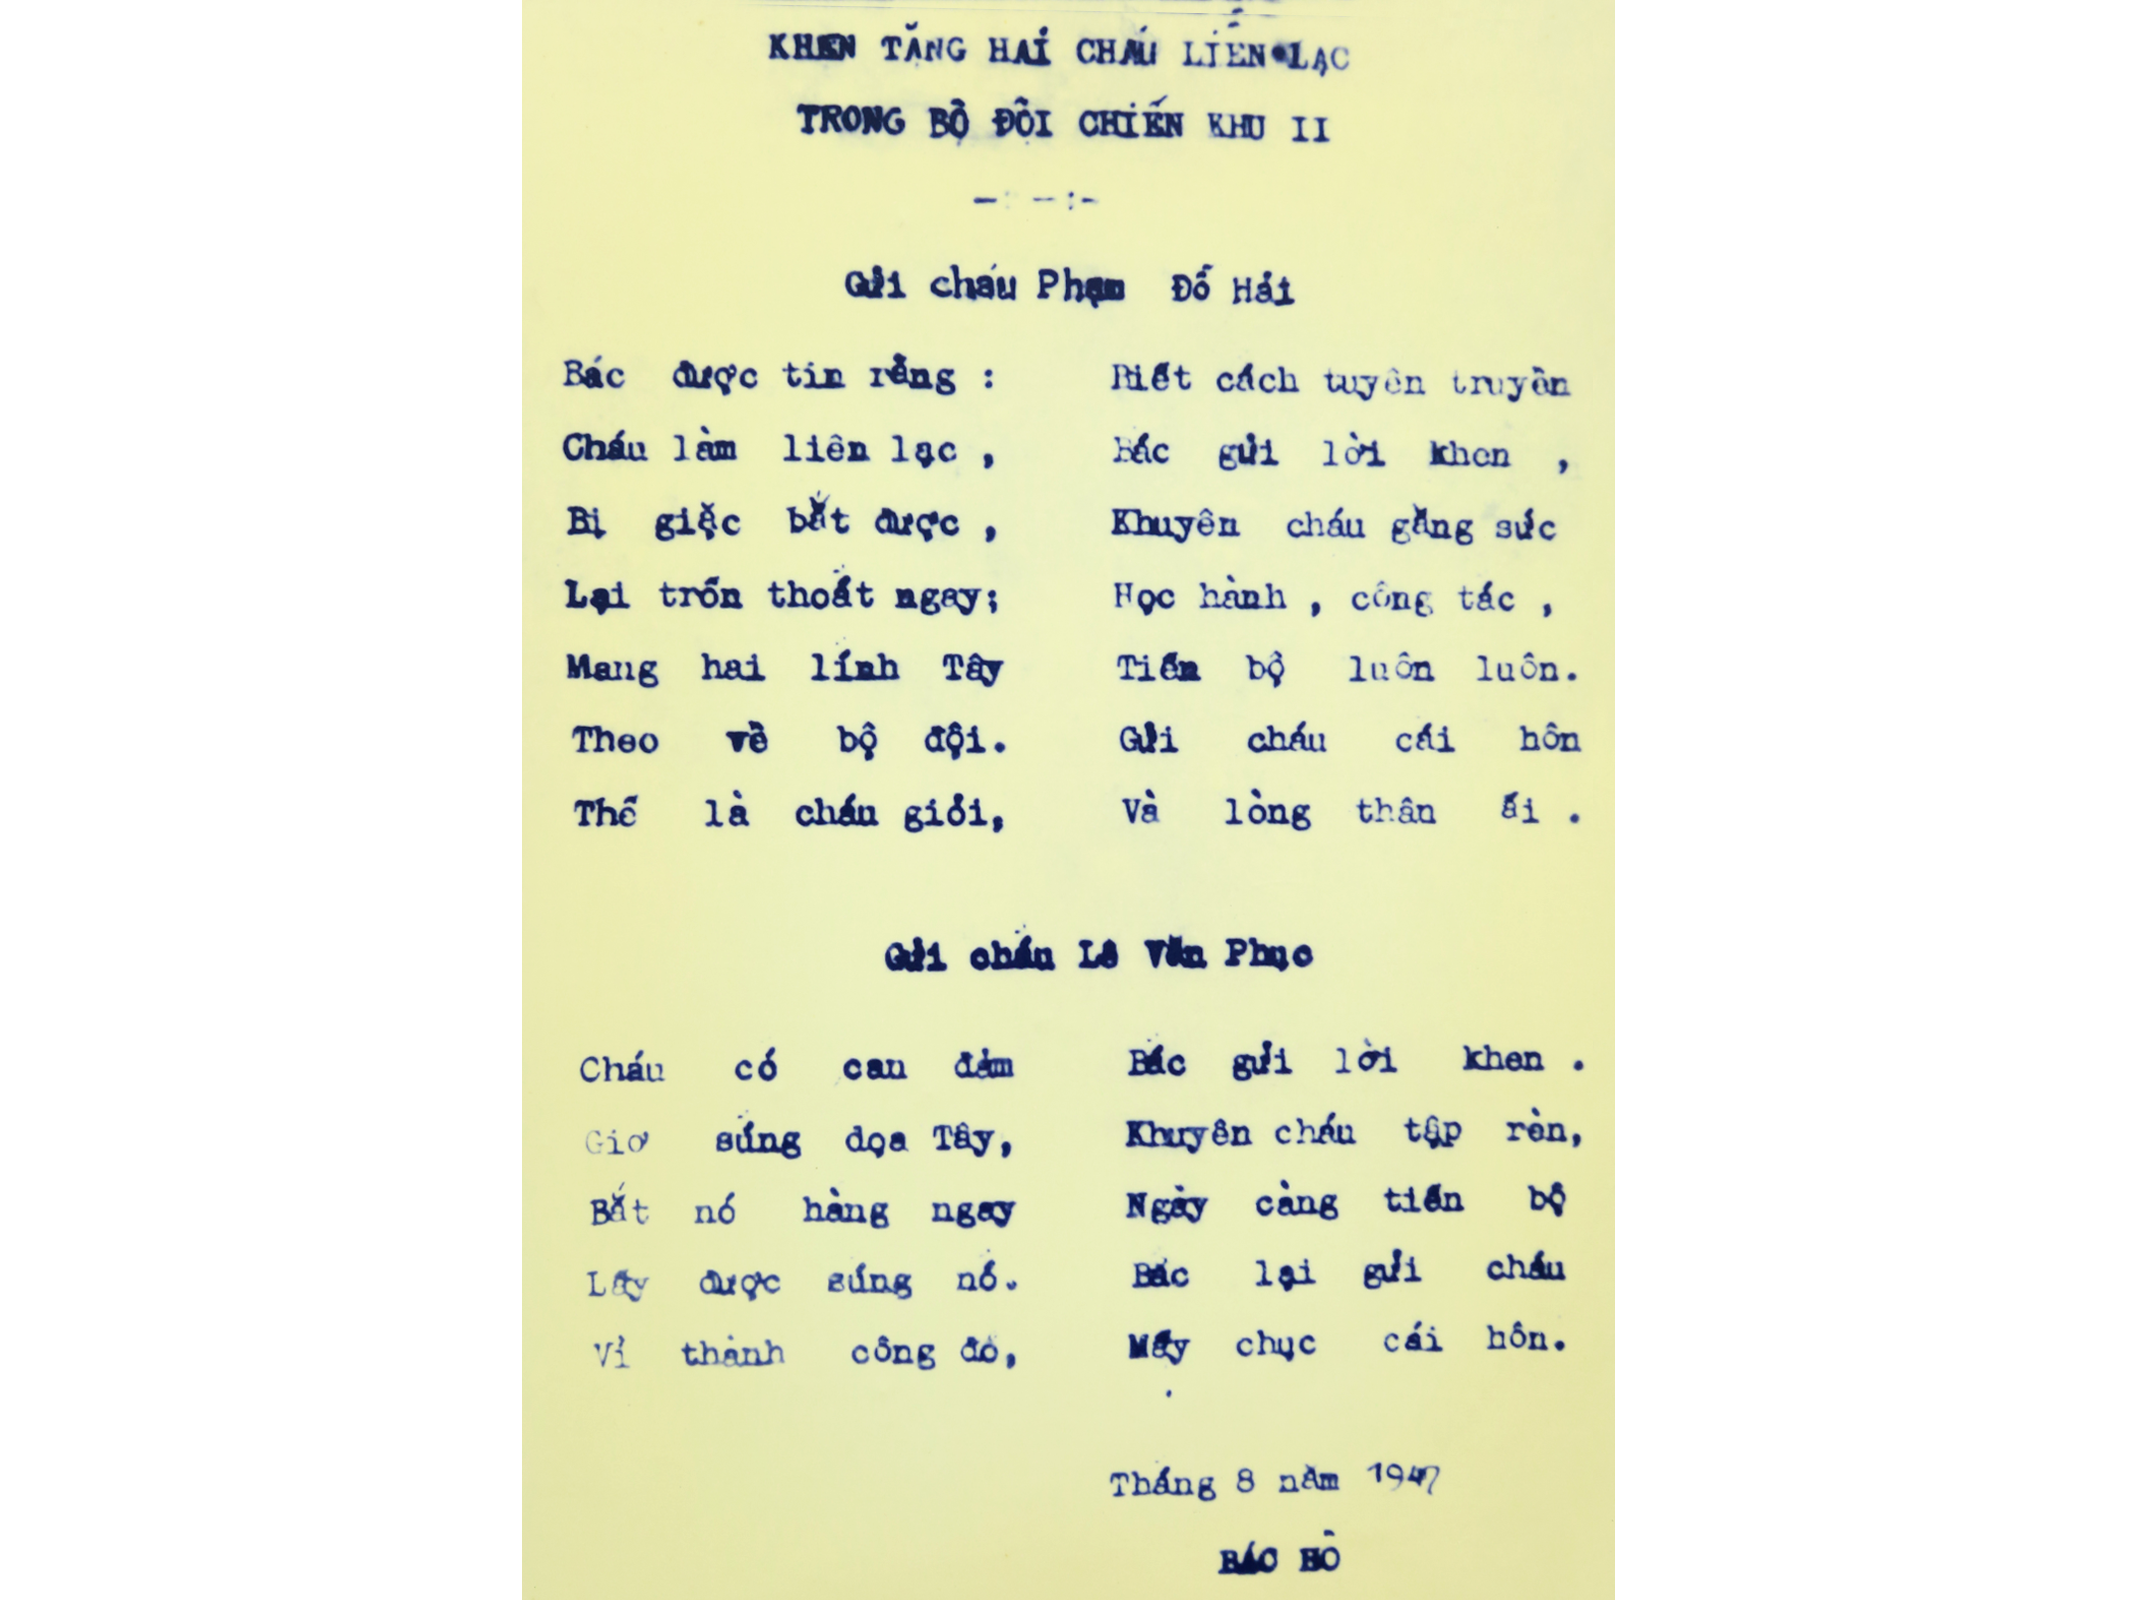 KHEN TẶNG HAI CHÁU LIÊN LẠC
TRONG BỘ ĐỘI CHIẾN KHU II
-:-:-
Gửi cháu Phạm Đỗ Hải
Bác được tin rằng :
Cháu làm liên lạc ,
Bị giặc bắt được ,
Lại trốn thoát ngay;
Mang hai lính Tây
Theo về bộ đội.
Thế là cháu giỏi,
Biết cách tuyên truyền
Bác gửi lời khen ,
Khuyên cháu gắng sức
Học hành , công tác ,
Tiến bộ luôn luôn.
Gửi cháu cái hôn
Và lòng thân ái .
Gửi cháu Lê Văn Phục
Cháu có can đảm
Giơ súng dọa Tây,
Bắt nó hàng ngay
Lấy được súng nó.
Vì thành công đó,
Bác gửi lời khen .
Khuyên cháu tập rèn,
Ngày càng tiến bộ
Bác lại gửi cháu
Mấy chục cái hôn.
Tháng 8 năm 1947
BÁC HỒ